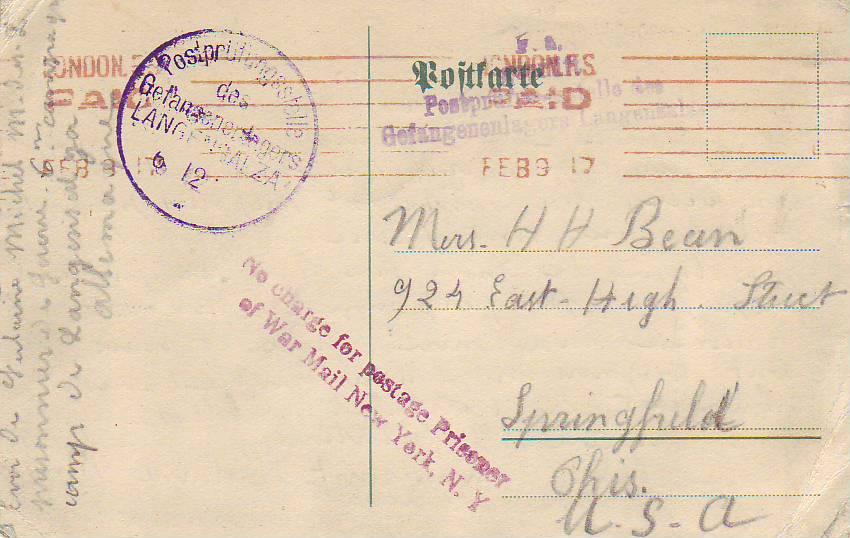 LONDON. F.S
PAID
FEB 9 17
Postprüfungsstelle
des
Gefangenenlagers
LANGENSALZA
9 12
F. a.
Postkarte
LONDON. F.S
PAID
FEB 9 17
Postprüfungsstelle des
Gefangenenlagers Langensalza
Mers. H H Bean
924 East-High. Street
Springfield
Ohis.
U.S.A
No charge for postage Prisoner
of War Mail New York, N. Y
Michel
prisonnier de guerre 6me compagnie
camp de Langensalza
Allemagne